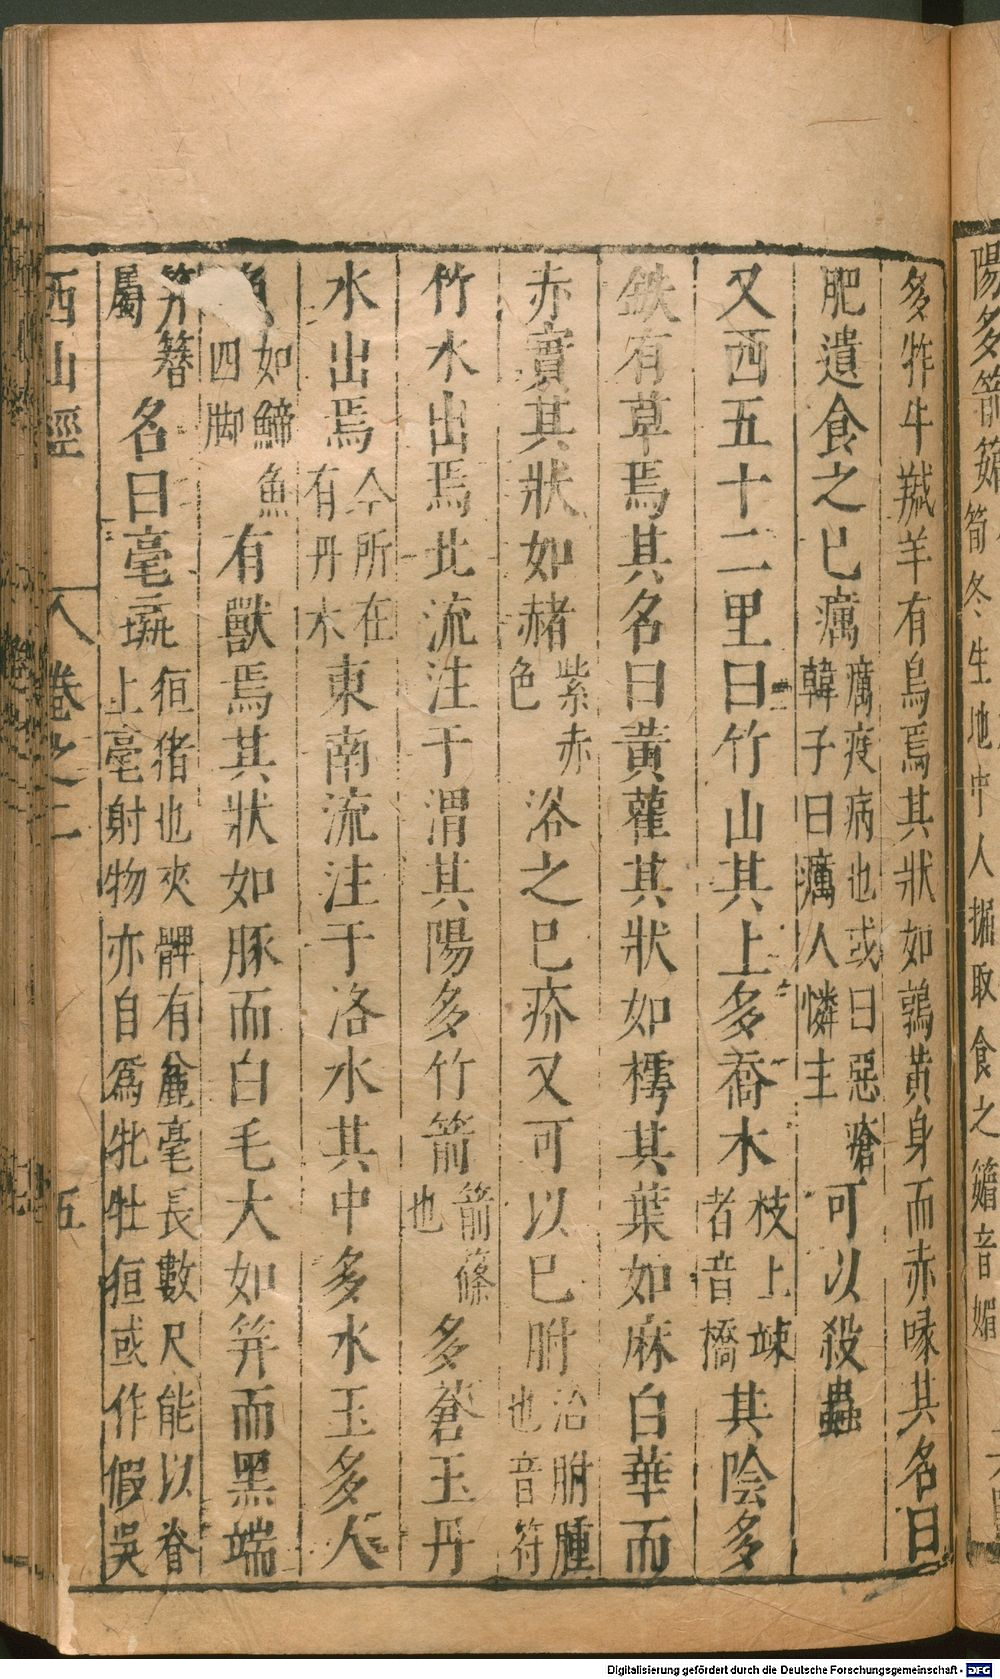 多㸲牛羬羊有鳥焉其狀如鶉黃身而赤喙其名曰
肥遺食之已癘癘疫病也或曰惡瘡韓子曰癘人憐主可以殺蟲
又西五十二里曰竹山其上多喬木枝上竦者音橋其陰多
鉄有草焉其名曰黃雚其狀如樗其葉如麻白華而
赤實其狀如赭紫赤色浴之已疥又可以已胕治胕腫也音符
竹水出焉北流注于渭其陽多竹箭箭篠也多蒼玉丹
水出焉今所在有丹水東南流注于洛水其中多水玉多人
魚如鯑魚四脚有獸焉其狀如豚而白毛大如笄而黑端
笄簪屬名曰毫彘狟猪也夾髀有麄毫長數尺能以脊上毫射物亦自爲牝牡狟或作假吳
西山經 卷之二 五
陽多箭䉋筍冬生地中人掘取食之䉋音媚
Digitalisierung gefördert durch die Deutsche Forschungsgemeinschaft - DFG